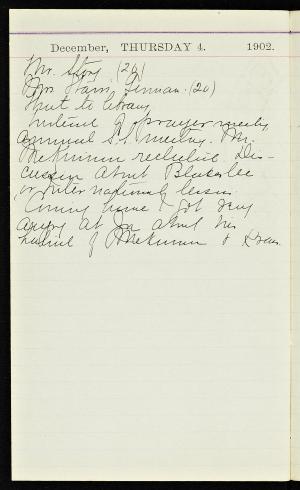 December, THURSDAY 4. 1902.
Mr. Story (20)
Mrs Harris, German. (20)
Went to library
Instead of prayer meeting
annual S.S. meeting. Mr.
McKinnon reelected. Dis-
cussion about Blakeslee
or International lessons
Coming home I got very
angry at Jn about his
hatred of McKinnon &